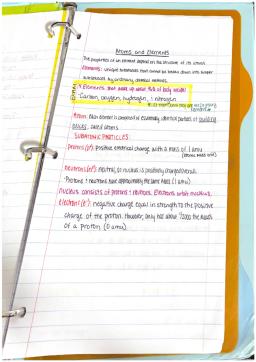 Atoms and Elements
The properties of an element depend on the structure of its atoms.
Elements: unique substances that cannot be broken down into simpler
substances by ordinary chemical methods.
4 Elements that make up about 96% of body weight:
Carbon, oxygen, hydrogen, & nitrogen
Atom: Each element is composed of essentially identical particles, or building
blocks, called atoms
SUBATOMIC PARTICLES:
protons (p⁺): positive electrical charge with a mass of 1 amu
(atomic mass unit)
neutrons (n⁰): neutral, so nucleus is positively charged overall.
Protons & neutrons have approximately the same mass (1 amu)
nucleus consists of protons & neutrons. Electrons orbit nucleus.
electrons (e⁻): negative charge equal in strength to the positive
charge of the proton. However, only has about 1/2000 the mass
of a proton (0 amu).